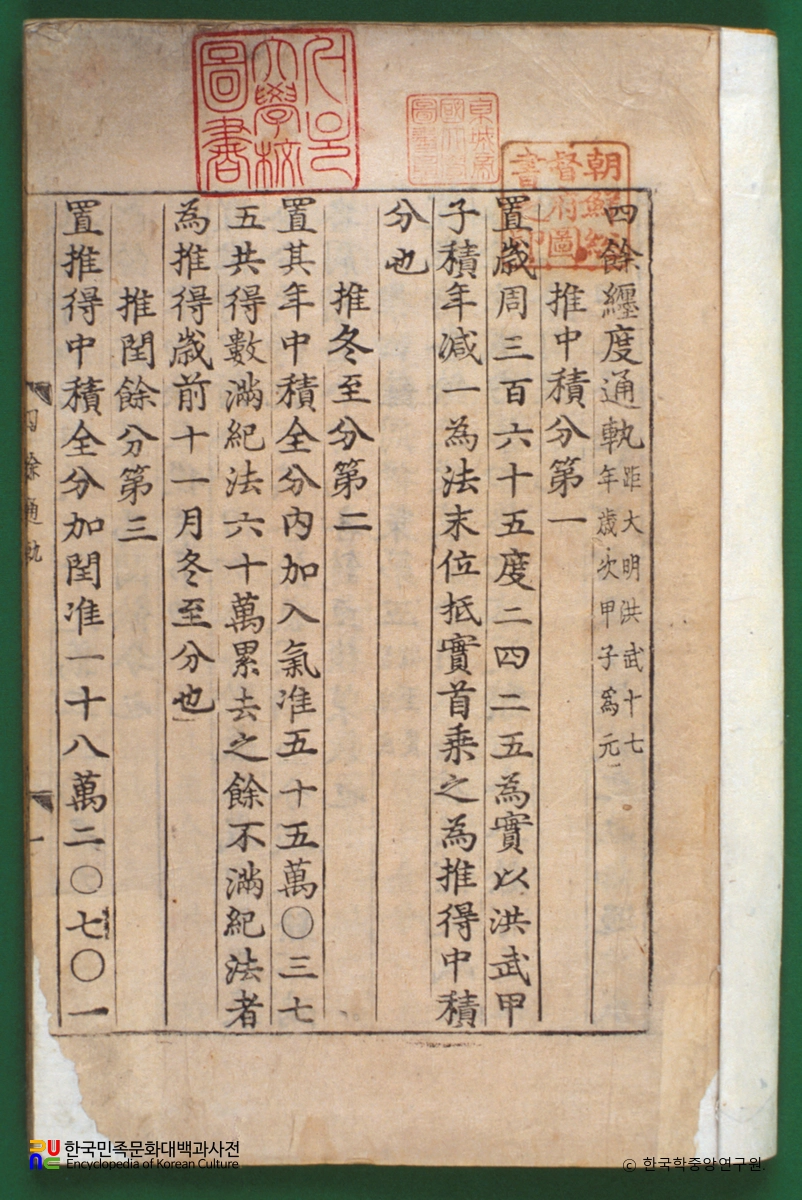 四餘纏度通軌 距大明洪武十七年歲次甲子爲元
推中積分第一
置歲周三百六十五度二四二五為實以洪武甲
子積年減一為法末位抵實首乗之為推得中積
分也
推冬至分第二
置其年中積全分內加入氣准五十五萬〇三七
五共得數滿紀法六十萬累去之餘不滿紀法者
為推得歲前十一月冬至分也
推閏餘分第三
置推得中積全分加閏准一十八萬二〇七〇一
四餘通軌
一
朝鮮總督府圖書之印
京城帝國大學圖書章
서울大學校圖書
한국민족문화대백과사전
Encyclopedia of Korean Culture
© 한국학중앙연구원